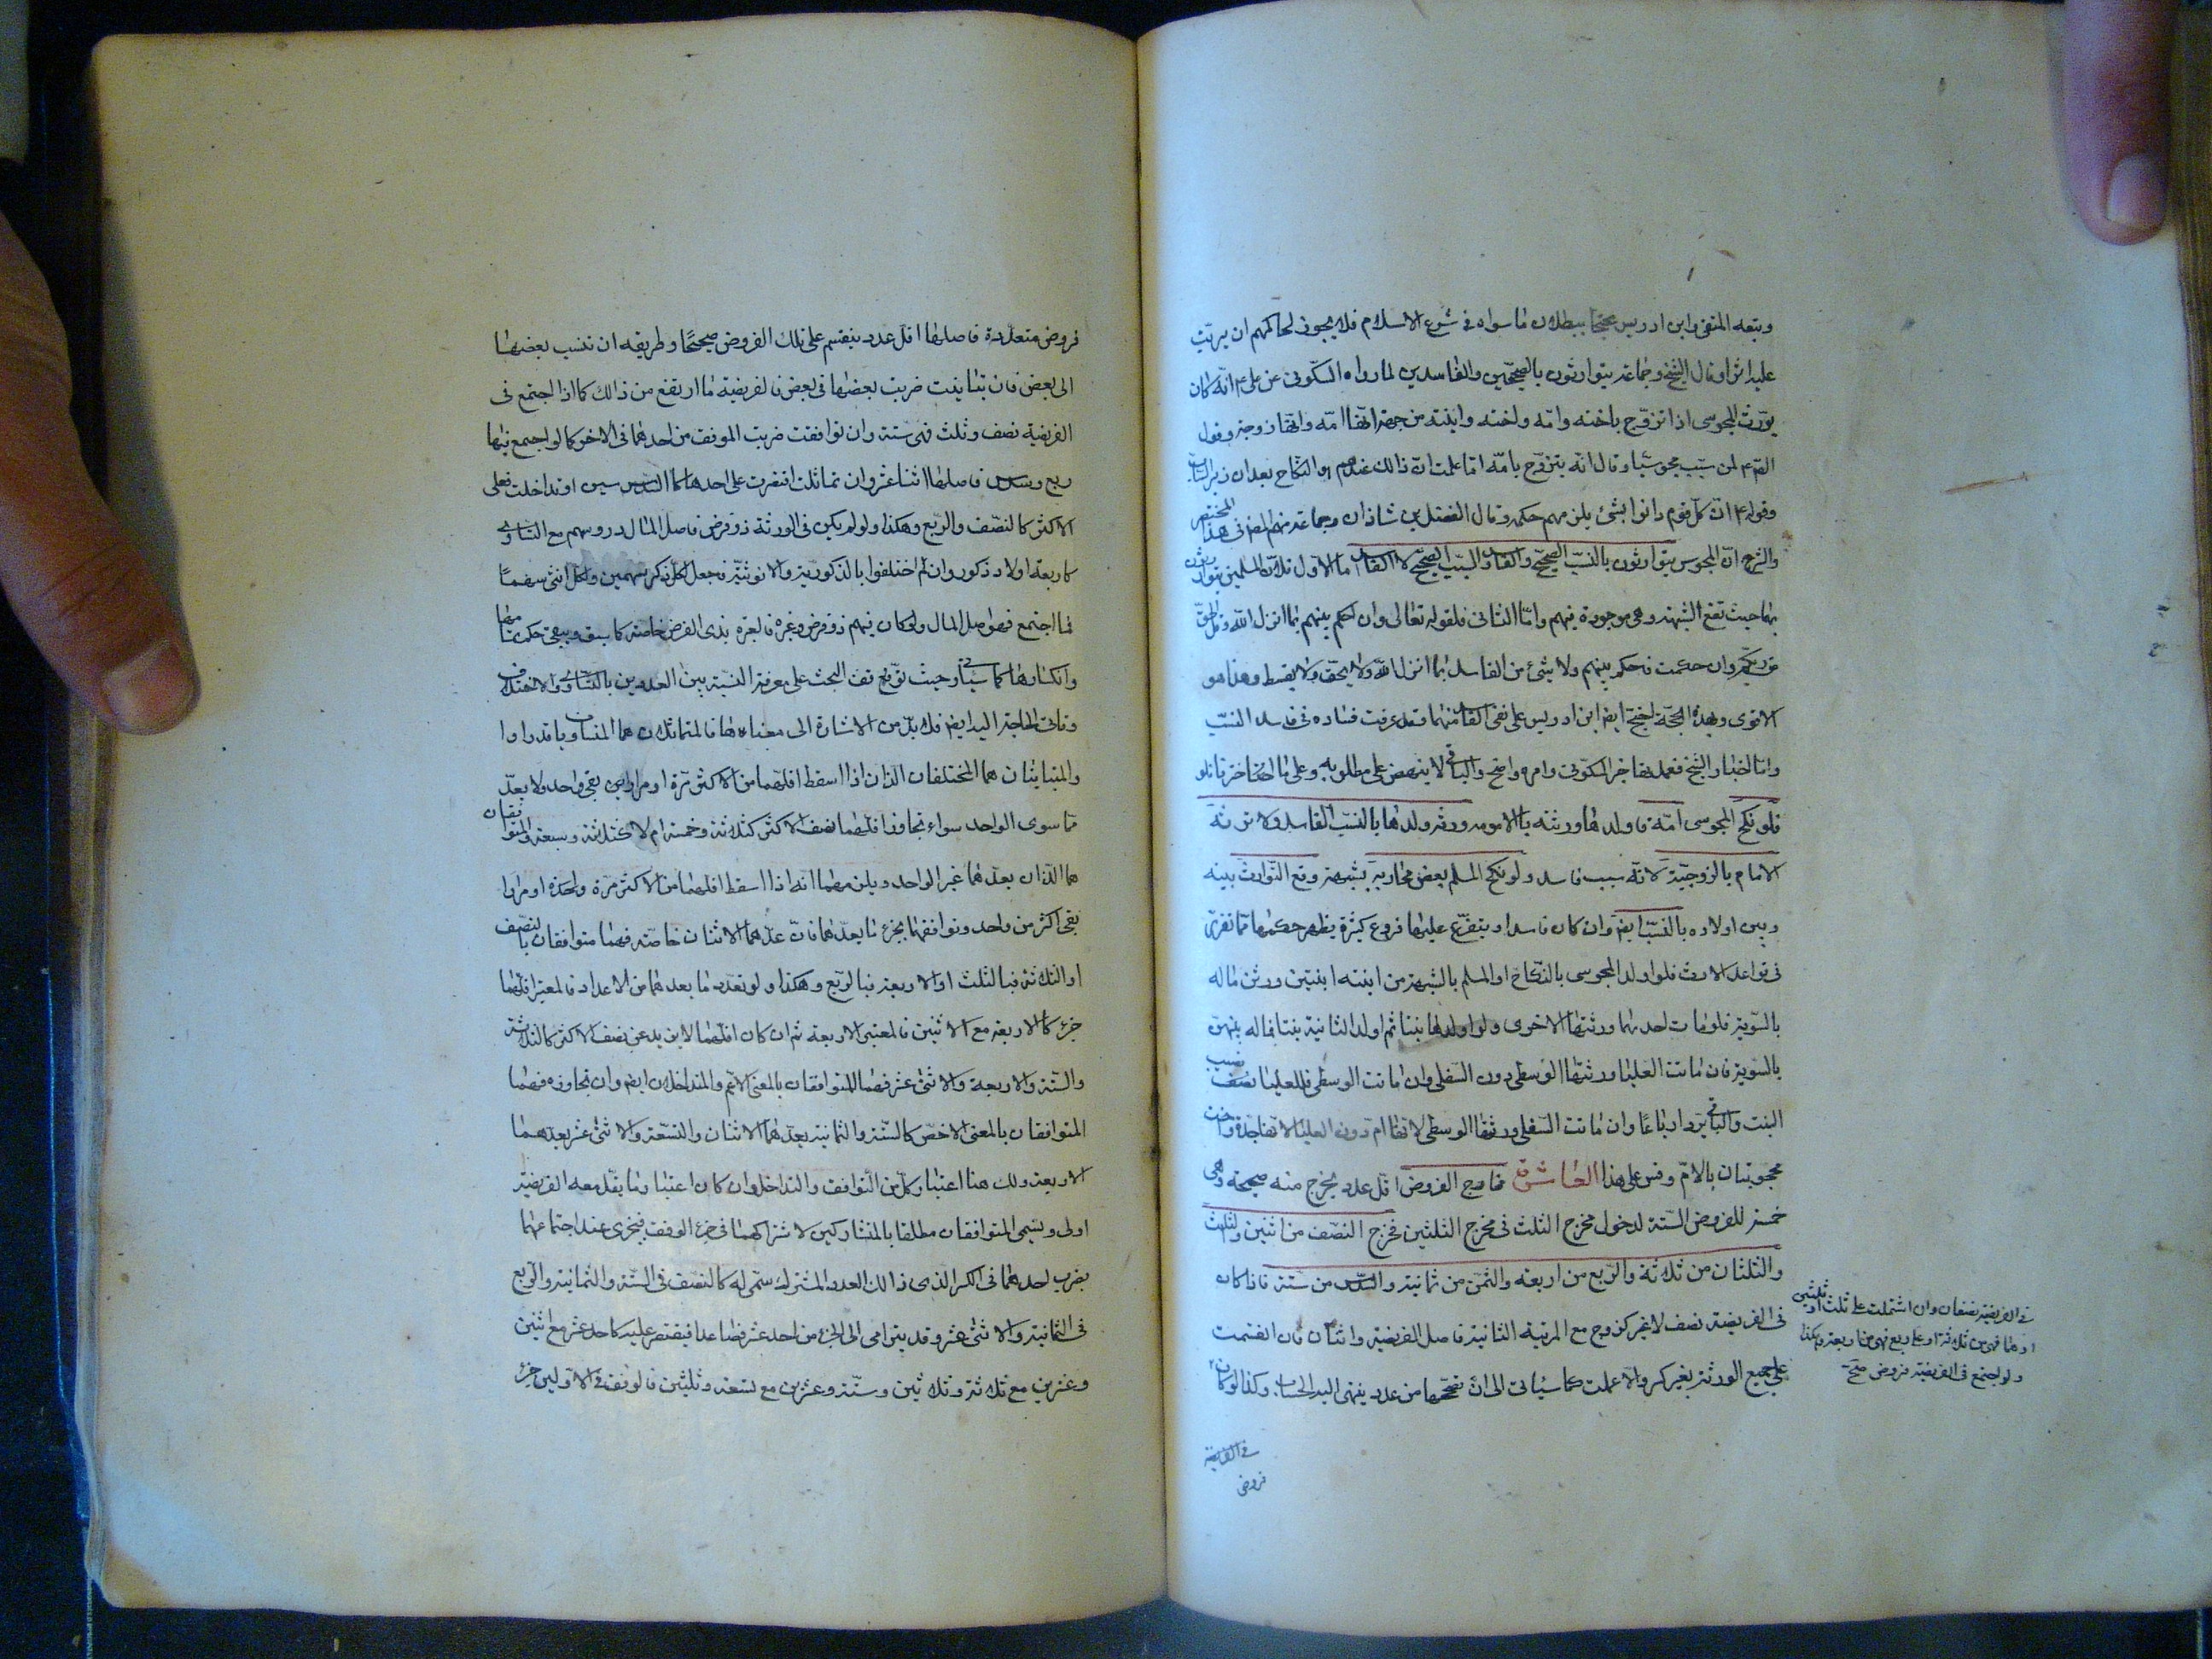 وتبعه المتقي وابن ادريس محتجا ببطلان ما سواه في شرع الاسلام فلا يجوز لحاكمهم ان يرتب
عليه اثرا وقال الشيخ وجماعة يتوارثون بالصحيحين والفاسدين لما رواه السكوني عن علي ع انه كان
يورث المجوسي اذا تزوج باخته وامه واخته وابنته من جهة انها امه وانها زوجته وقول
الصم لمن سبب مجوسيا وقال انه يتزوج بامه اما علمت ان ذالك عندهم هو النكاح بعد ان زبر الساب
وقوله ع ان كل قوم دانوا بشئ يلزمهم حكمه وقال الفضل بن شاذان وجماعة منهم المصنف في هذا المختصر
والشرح ان المجوس يتوارثون بالنسب الصحيح والفاسد والسبب الصحيح لا الفاسد اما الاول فلان المسلمين يتوارثون
بهما حيث تقع الشبهة وهي موجودة فيهم واما الثاني فلقوله تعالى وان احكم بينهم بما انزل الله وقل الحق
من ربكم وان حكمت فاحكم بينهم ولا شئ من الفاسد بما انزل الله ولا بحق ولا بقسط وهذا هو
الاقوى وبهذه الحجة احتج ايضا ابن ادريس على نفي الفاسد منهما وقد عرفت فساده في فاسد النسب
واما اخبار الشيخ فعمدتها خبر السكوني وامره واضح والباقي لا ينهض على مطلوبه وعلى ما اخترناه
فلو نكح المجوسي امه فاولدها ورثته بالامومة وورثه ولدها بالنسب الفاسد ولا ترثه
الام بالزوجية لانه سبب فاسد ولو نكح المسلم بعض محارمه بشبهة وقع التوارث بينه
وبين اولاده بالنسب ايضا وان كان فاسدا ويتفرع عليهما فروع كثيرة يظهر حكمها مما تقرر
في قواعد الارث فلو اولد المجوسي بالنكاح او المسلم بالشبهة من ابنته ابنتين ورثن ماله
بالسوية فلو ماتت احديهما ورثتها الاخرى ولو اولدها بنتا ثم اولد الثانية بنتا فماله بينهن
بالسوية فان ماتت العليا ورثتها الوسطى دون السفلى وان ماتت الوسطى فللعليا نصيب
البنت والباقي يرد ارباعا وان ماتت السفلى ورثتها الوسطى لانها ام دون العليا لانها جدة واخت
محجوبتان بالام وقس على هذا العاشرة مخارج الفروض اقل عدد يخرج منه صحيحة وهي
خمسة للفروض الستة لدخول مخرج الثلث في مخرج الثلثين فمخرج النصف من اثنين والثلث
والثلثان من ثلاثة والربع من اربعة والثمن من ثمانية والسدس من ستة فاذا كان
في الفريضة نصف لا غير كزوج مع المرتبة الثانية فاصل الفريضة واثنان فان انقسمت
على جميع الورثة بغير كسر والا عملت كما سياتي الى ان تصححها من عدد ينتهي اليه الحساب وكذا لو كان
في الفريضة نصفان وان اشتملت على ثلث او ثلثين
او هما فهي من ثلاثة او على ربع فهي من اربعة وهكذا
ولو اجتمع في الفريضة فروض صح
في الفريضة
فروض
فروض متعددة فاصلها اقل عدد ينقسم على تلك الفروض صحيحا وطريقه ان تنسب بعضها
الى بعض فان تباينت ضربت بعضها في بعض فالفريضة ما ارتفع من ذالك كما اذا اجتمع في
الفريضة نصف وثلث فهي ستة وان توافقت ضربت الموفق من احدهما في الاخر كما لو اجتمع فيها
ربع وسدس فاصلها اثنا عشر وان تماثلت اقتصرت على احدهما كالسدسين او تداخلت فعلى
الاكثر كالنصف والربع وهكذا ولو لم يكن في الورثة ذو فرض فاصل المال رؤسهم مع التساوي
كاربعة اولاد ذكور وان اختلفوا بالذكورية والانوثية فاجعل لكل ذكر سهمين ولكل انثى سهما
فما اجتمع فهو اصل المال ولو كان فيهم ذو فرض وغيره فالعبرة بذي الفرض خاصة كما سبق ويبقى حكم تمامها
وانكسارها كما سياتي وحيث توقف البحث على معرفة النسبة بين العددين بالتساوي والاختلاف
وتاتي الحاجة اليه ايضا فلا بد من الاشارة الى معناها فالمتماثلان هما المتساويان قدرا
والمتباينان هما المختلفان الذان اذا اسقط اقلهما من الاكثر مرة او مرارا بقي واحد ولا يعد
ما سوى الواحد سواء تجاوز اقلهما نصف الاكثر كثلاثة وخمسة ام لا كثلاثة وسبعة والمتوافقان
هما الذان يعدهما غير الواحد ويلزمهما انه اذا اسقط اقلهما من الاكثر مرة واحدة او مرارا
بقي اكثر من واحد وتوافقهما بجزء ما يعدهما فان عدهما الاثنان خاصة فهما متوافقان بالنصف
او الثلاثة فبالثلث او الاربعة فبالربع وهكذا ولو تعدد ما يعدهما من الاعداد فالمعتبر اقلهما
جزء كالاربعة مع الاثنين فالمعتبر الاربعة ثم ان كان اقلهما لا يزيد عن نصف الاكثر كالثلاثة
والستة والاربعة والاثنى عشر فهما المتوافقان بالمعنى الاعم والمتداخلان ايضا وان تجاوزه فهما
المتوافقان بالمعنى الاخص كالستة والثمانية يعدهما الاثنان والتسعة والاثنى عشر يعدهما
الاربعة ولك هنا اعتبار كل من التوافق والتداخل وان كان اعتبار ما يقل معه الفريضة
اولى ويسمى المتوافقان مطلقا بالمتشاركين لاشتراكهما في جزء الوفق فيجزي عند اجتماعهما
بضرب احدهما في الكسر الذي ذالك العدد المشترك سمي له كالنصف في الستة والثمانية والربع
في الثمانية والاثنى عشر وقد يترامى الى الجزء من احد عشر فصاعدا فيقتصر عليه كاحد عشر مع اثنين
وعشرين مع ثلاثة وثلاثين وستة وعشرين مع تسعة وثلثين فالوفق في الاولين جزء